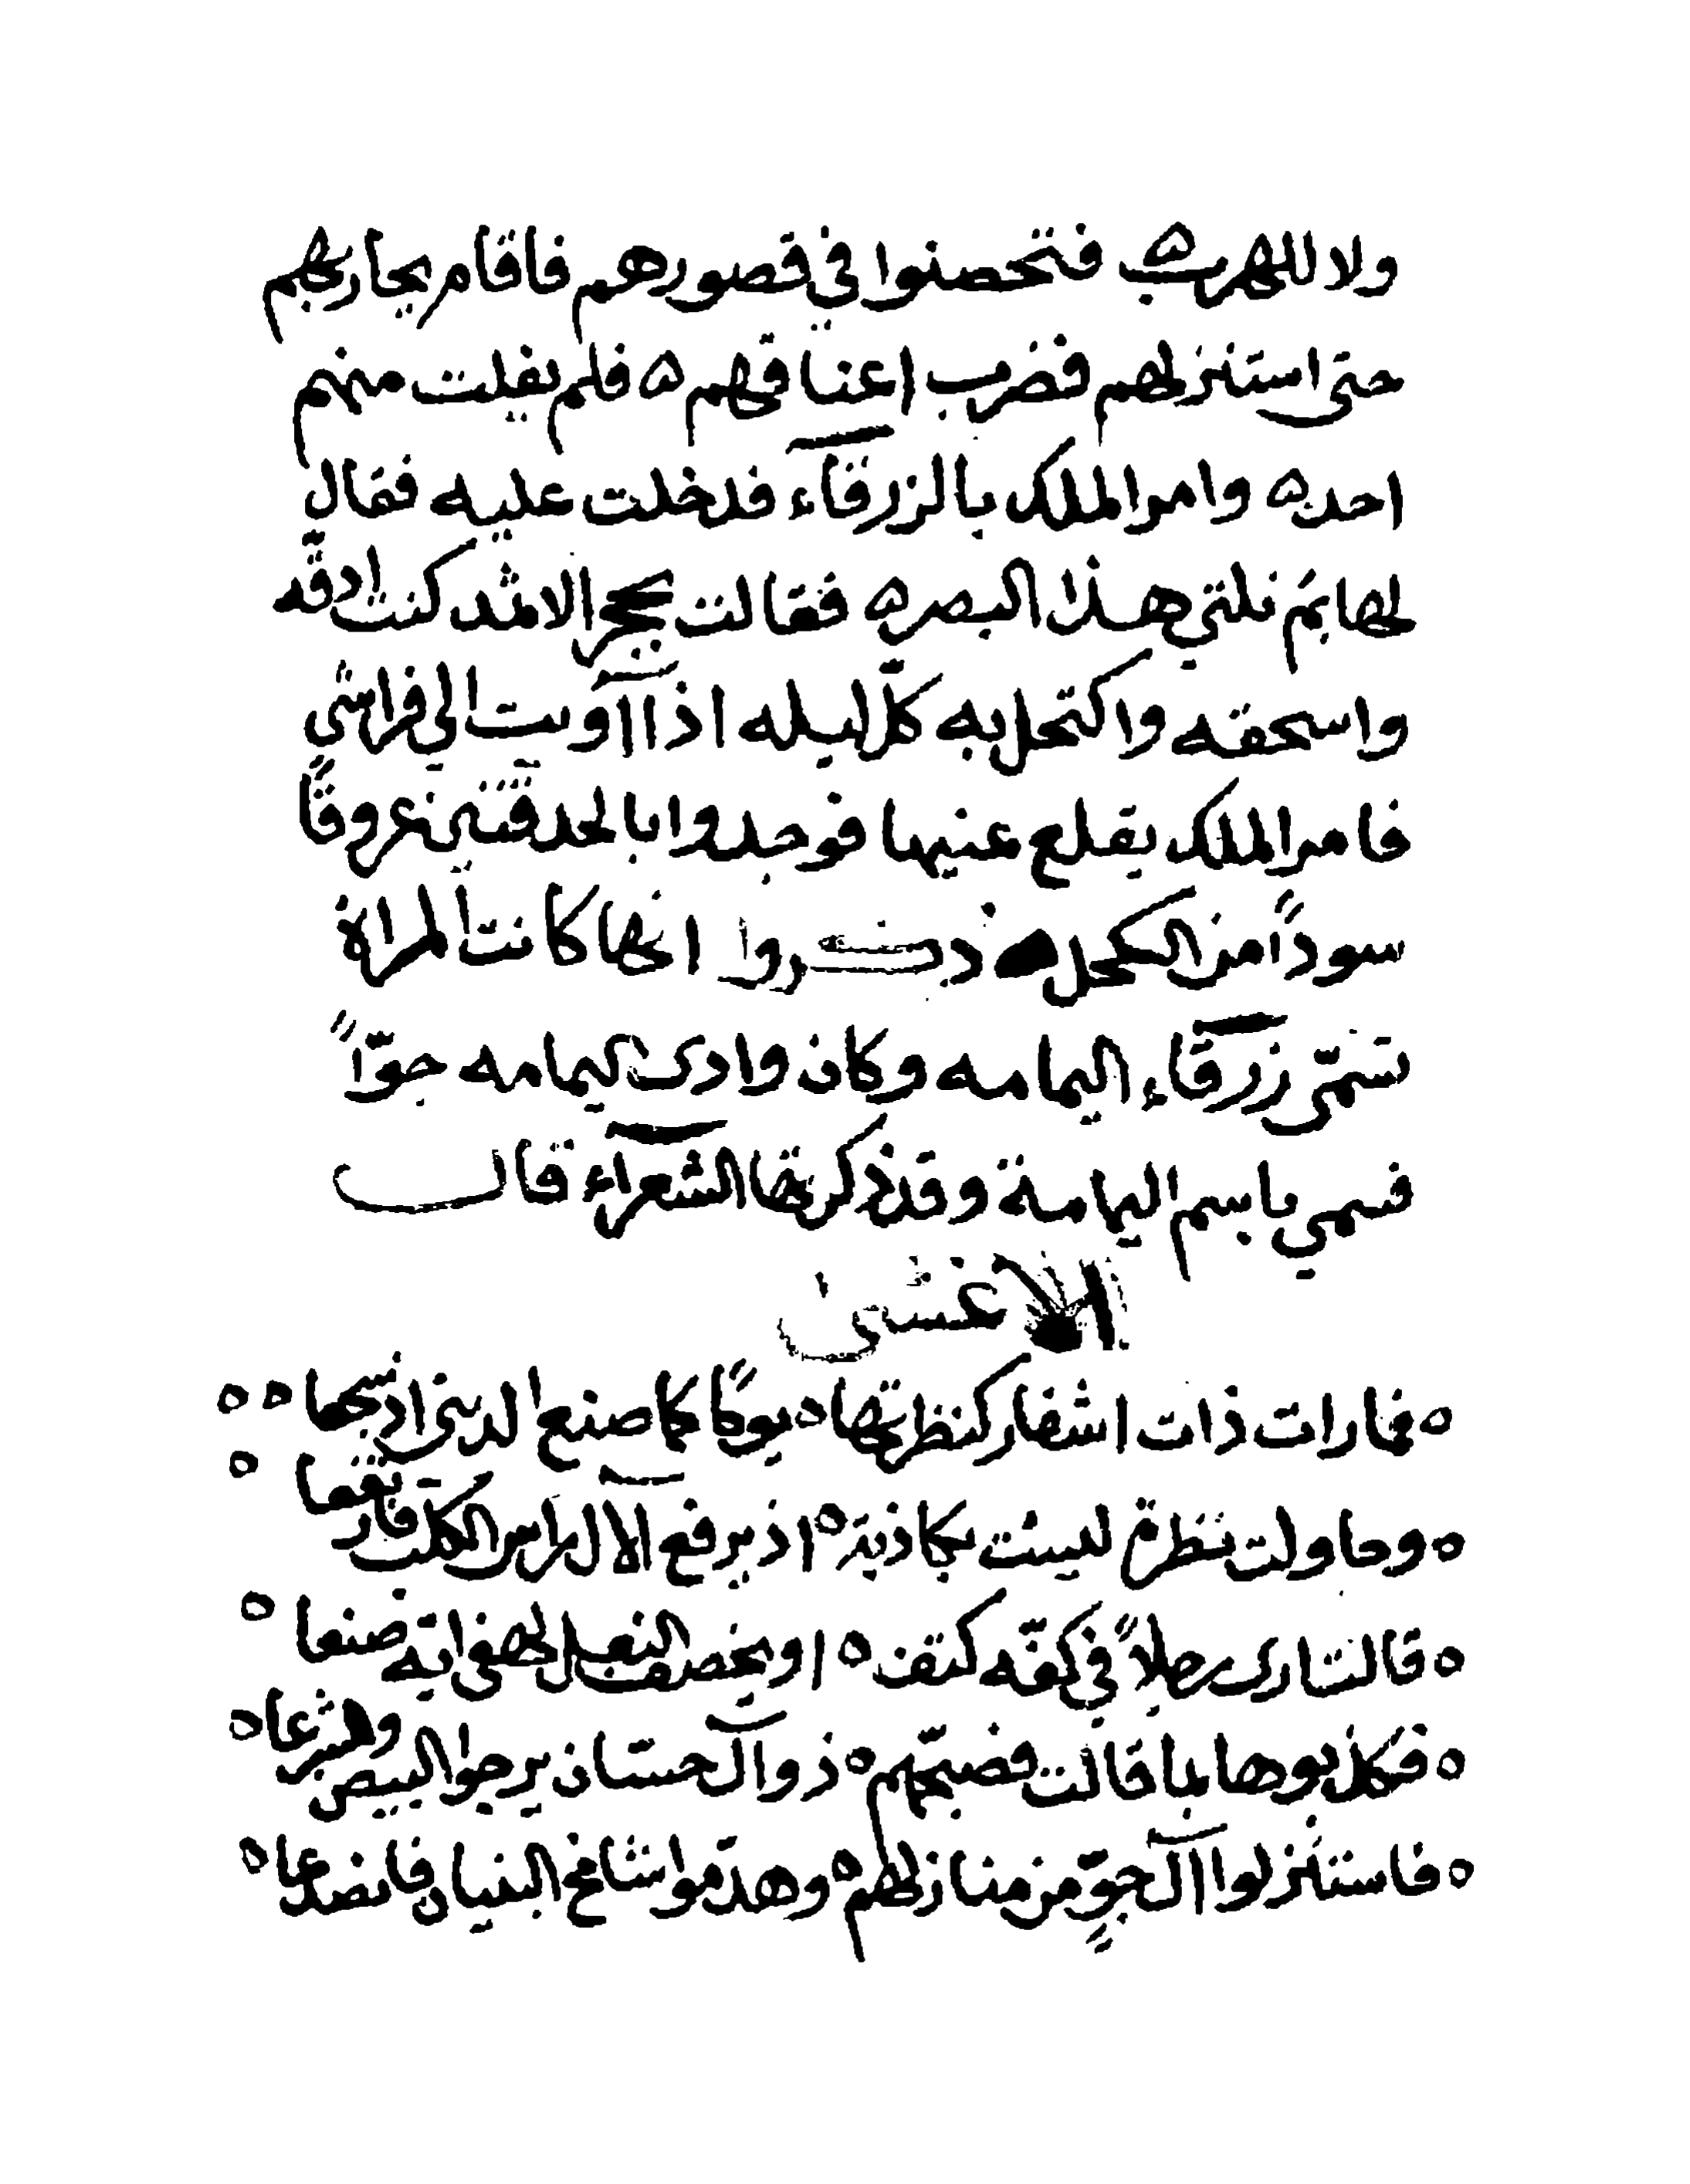 ولا للهرب ه فتحصنوا في قصورهم فاقام يحاربهم
حتى استنزلهم فضرب اعناقهم ه فلم يفلت منهم
احد ه وامر الملك بالزرقآء فدخلت عليه فقال
لها بم نلتي هذا البصر ه فقالت بحجر الاثمد كنت ادقه
واسحقه واكتحل به كلّ ليله اذا آاويت الي فراشي
فامر الملك بقلع عنيها فوجدوا بالحدقتين عروقاً
سوداً من الكحل ه ذكروا انها كانت المراة
تسمّى زرقآء اليمامه وكان وادى اليمامه جوّاً
فسمي باسم اليمامة وقد ذكرتها الشعرآء قال
الاعشى
ه فما رات ذات اشفار كنظرتها ه يوماً كما صنع الديني اذ سجعا ه ه
ه وحاولت نظرة ليست بكاذبة ه اذ يرفع الال راس الكلب فارتفعا ه
ه قالت ارى رجلاً في كفّه كتف ه او يخصف النعل لهفي اية صنعا ه
ه فكذبوها بما قالت فصبّحهم ه ذوآل حسان يرجوا البيض والشرعا ه
ه فاستنزلوا آل جوٍّ من منازلهم ه وهدّموا شامخ البنيان فانصدعا ه